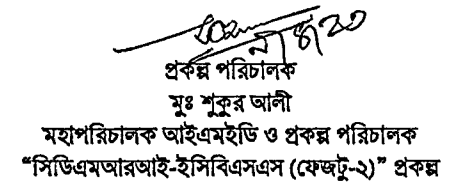 প্রকল্প পরিচালক
মুঃ শুকুর আলী
মহাপরিচালক আইএমইডি ও প্রকল্প পরিচালক
“সিডিএমআরআই-ইসিবিএসএস (ফেজটু-২)” প্রকল্প